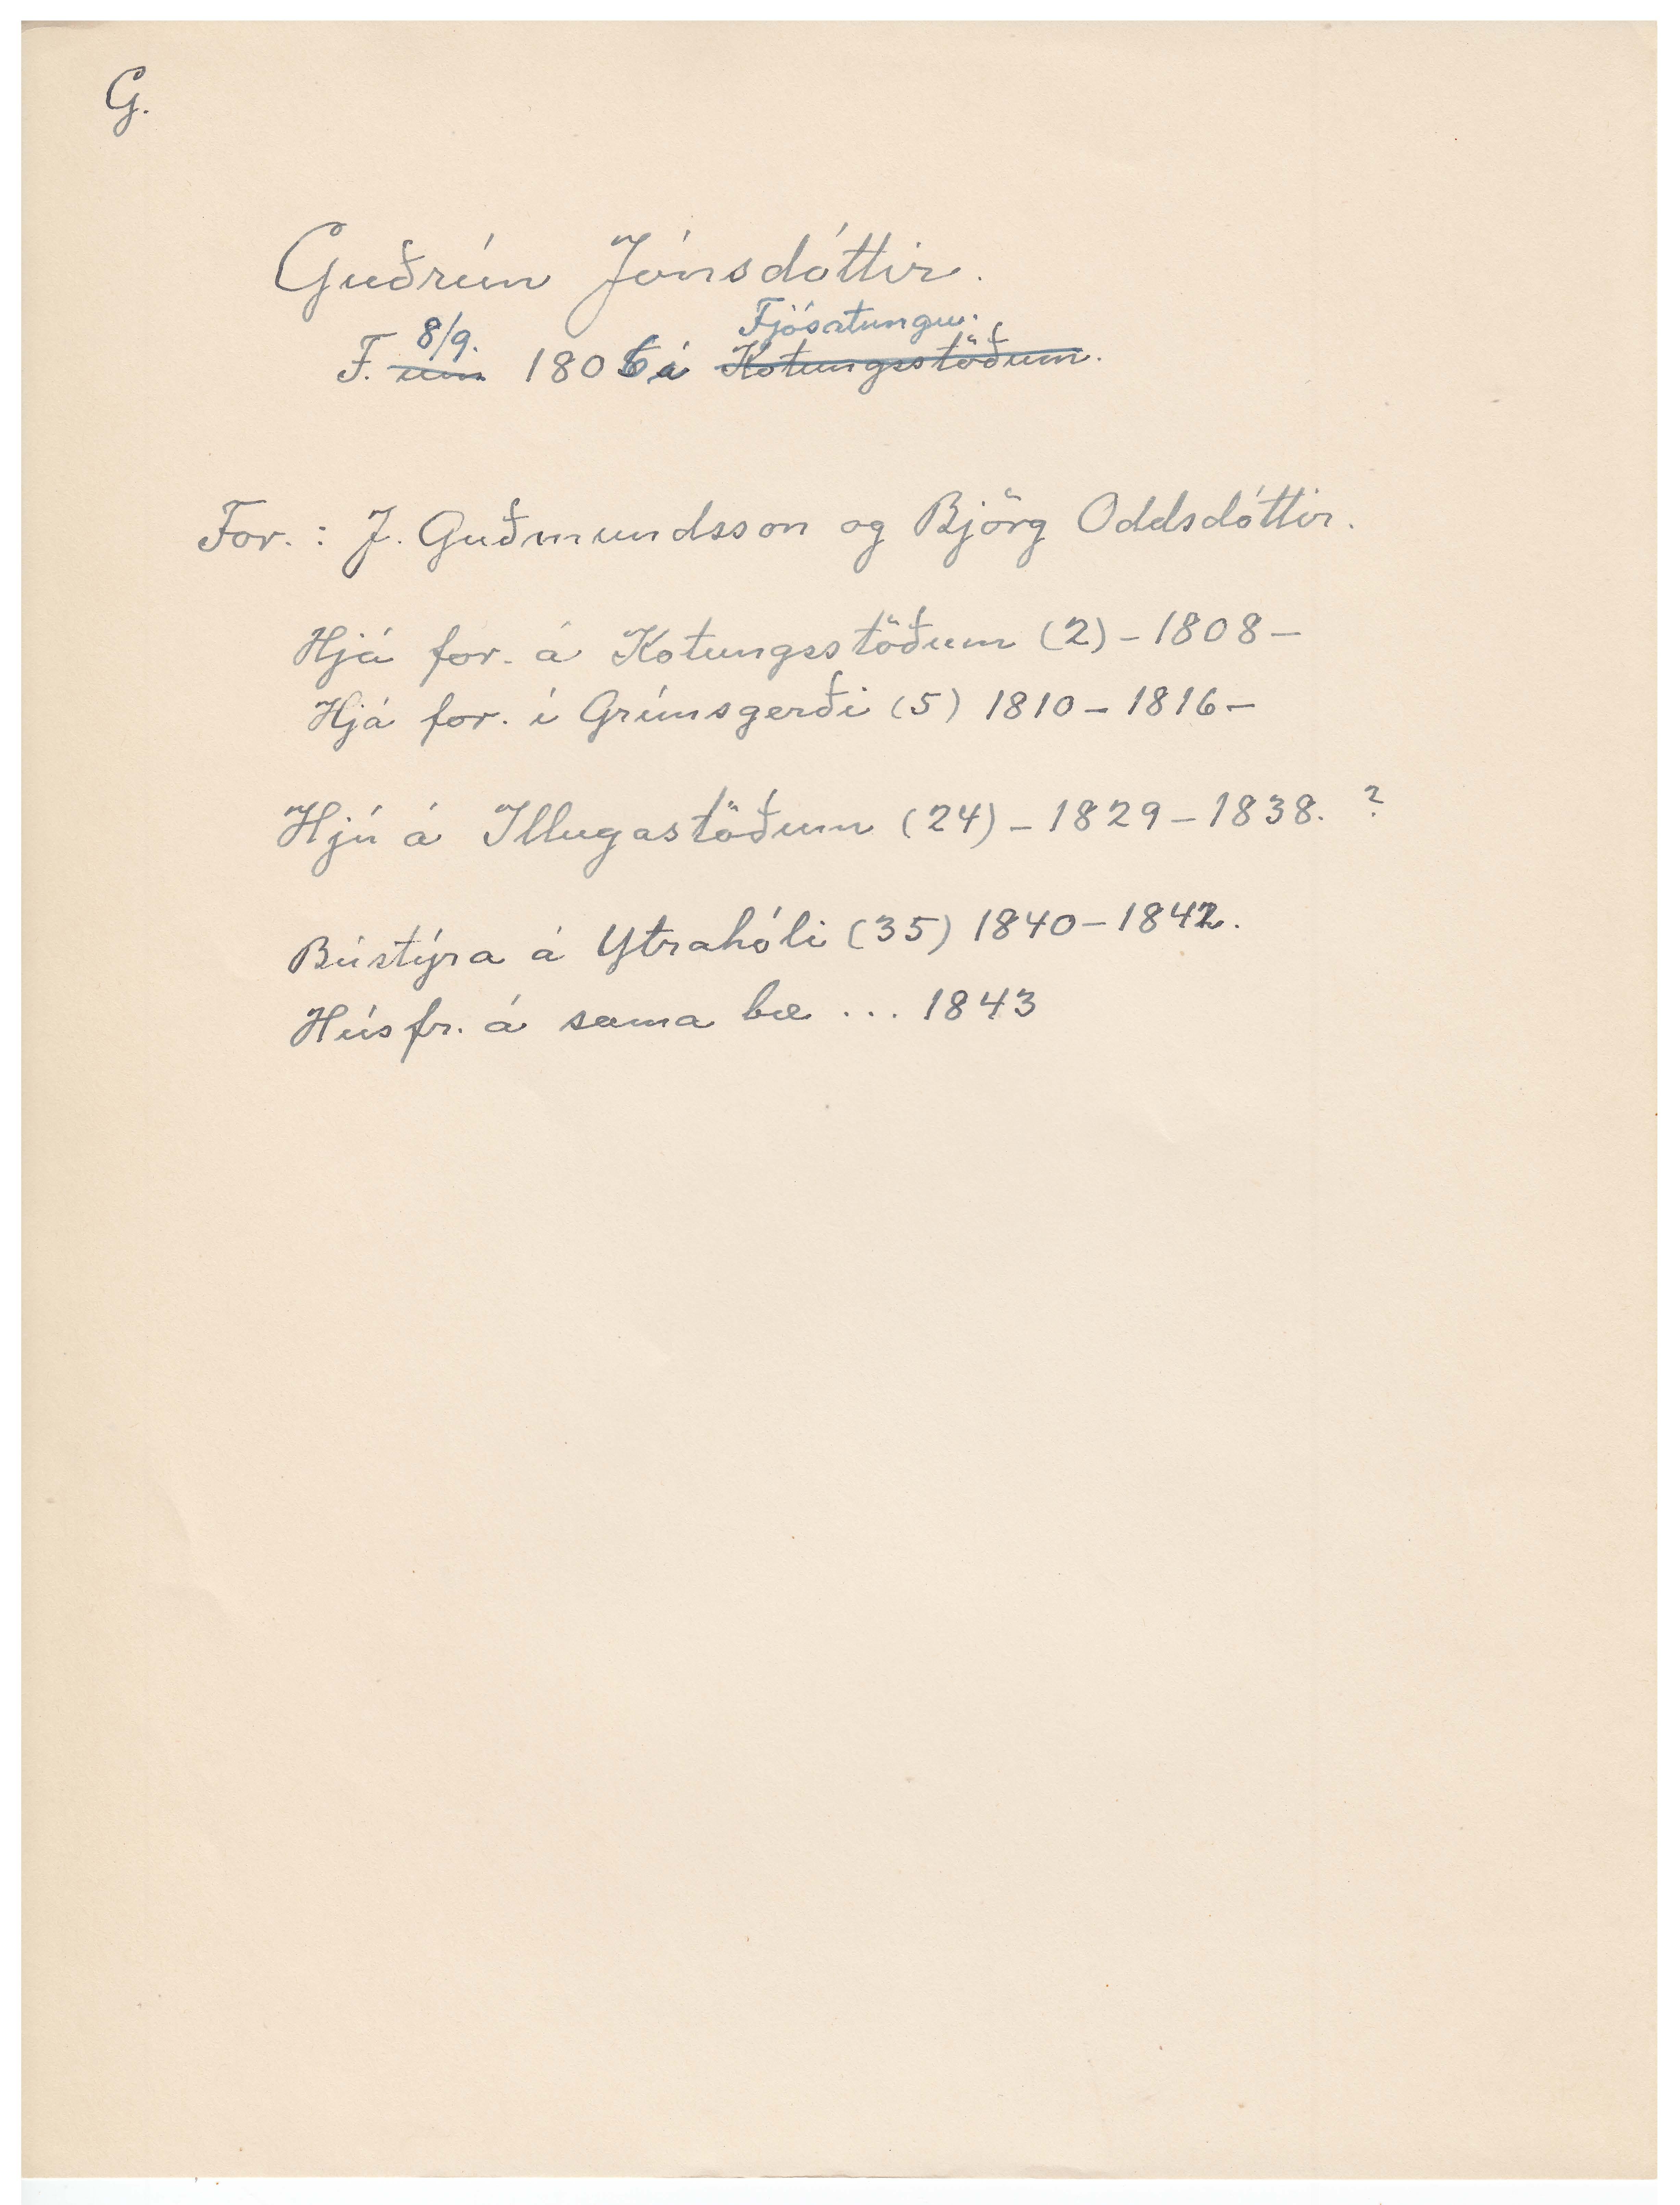 G.
Guðrún Jónsdóttir.
8/9. Fjósatungu.
F. um 1806 á Kotungsstöðum.
For. : J. Guðmundsson og Björg Oddsdóttir.
Hjá for. á Kotungsstöðum (2) – 1808 –
Hjá for. í Grímsgerði (5) 1810 – 1816 –
Hjú á Illugastöðum (24) – 1829 – 1838. ?
Bústýra á Ytrahóli (35) 1840 – 1842.
Húsfr. á sama bæ ... 1843